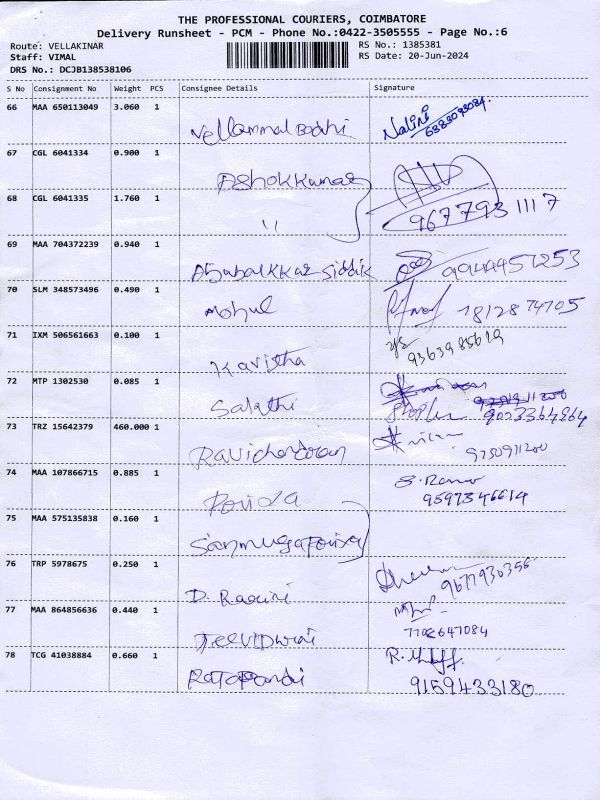 THE PROFESSIONAL COURIERS, COIMBATORE
Delivery Runsheet - PCM - Phone No.:0422-3505555 - Page No.:6
Route: VELLAKINAR
RS No.: 1385381
Staff: VIMAL
RS Date: 20-Jun-2024
DRS No.: DCJB138538106
S No Consignment No Weight PCS Consignee Details Signature
66 MAA 650113049 3.060 1 Vellammal Bodhi Nalini 6383093084.
67 CGL 6041334 0.900 1 Ashok Kumar
68 CGL 6041335 1.760 1 " 9677931117
69 MAA 704372239 0.940 1 Siddik 9944451253
70 SLM 348573496 0.490 1 Mohul
71 IXM 506561663 0.100 1 Kavitha 9363985619
72 MTP 1302530 0.085 1 Sakthi
73 TRZ 15642379 460.000 1 Ravichandran
74 MAA 107866715 0.885 1 S. 9597346614
75 MAA 575135838 0.160 1
76 TRP 5978675 0.250 1 D. Ragini 9677930356
77 MAA 864856636 0.440 1 7702647084
78 TCG 41038884 0.660 1 R. 9159433180